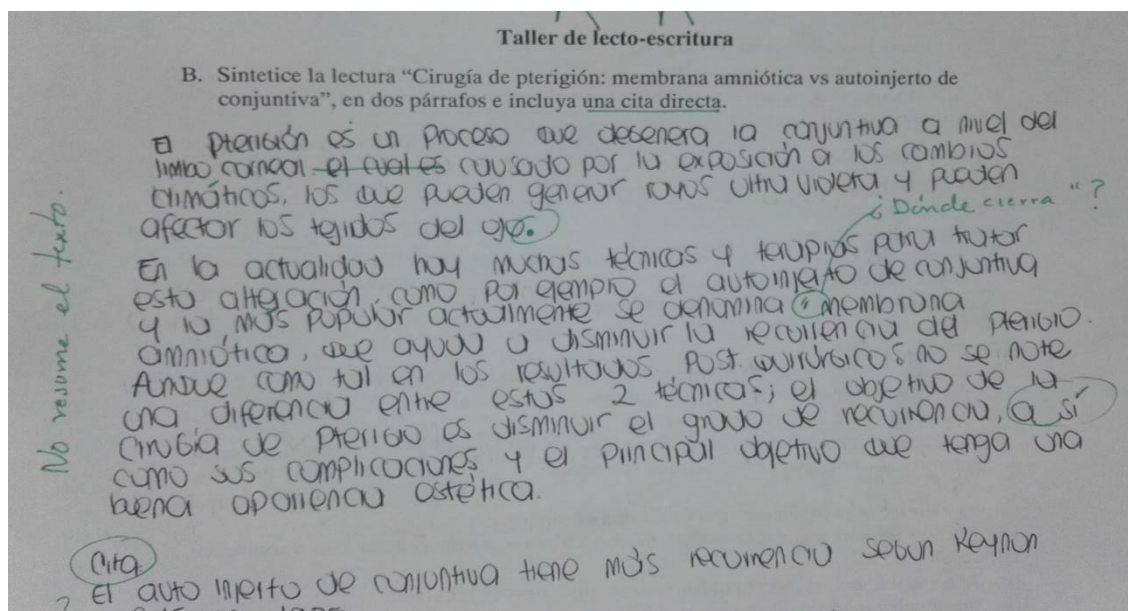 Taller de lecto-escritura
B. Sintetice la lectura "Cirugía de pterigión: membrana amniótica vs autoinjerto de
conjuntiva", en dos párrafos e incluya una cita directa.
El pterigión es un proceso que degenera la conjuntiva a nivel del
limbo corneal el cual es causado por la exposición a los cambios
climáticos, los que pueden generar rayos ultra violeta y pueden
afectar los tejidos del ojo.
¿Dónde cierra "?
En la actualidad hay muchas técnicas y terapias para tratar
esta alteración, como por ejemplo el autoinjerto de conjuntiva
y la más popular actualmente se denomina "membrana
amniótica, que ayuda a disminuir la recurrencia del pterigio.
Aunque como tal en los resultados post. quirúrgicos no se note
una diferencia entre estas 2 técnicas; el objetivo de la
cirugía de pterigio es disminuir el grado de recurrencia, a si
como sus complicaciones y el principal objetivo que tenga una
buena apariencia estética.
No resume el texto.
Cita
El auto injerto de conjuntiva tiene más recurrencia segun